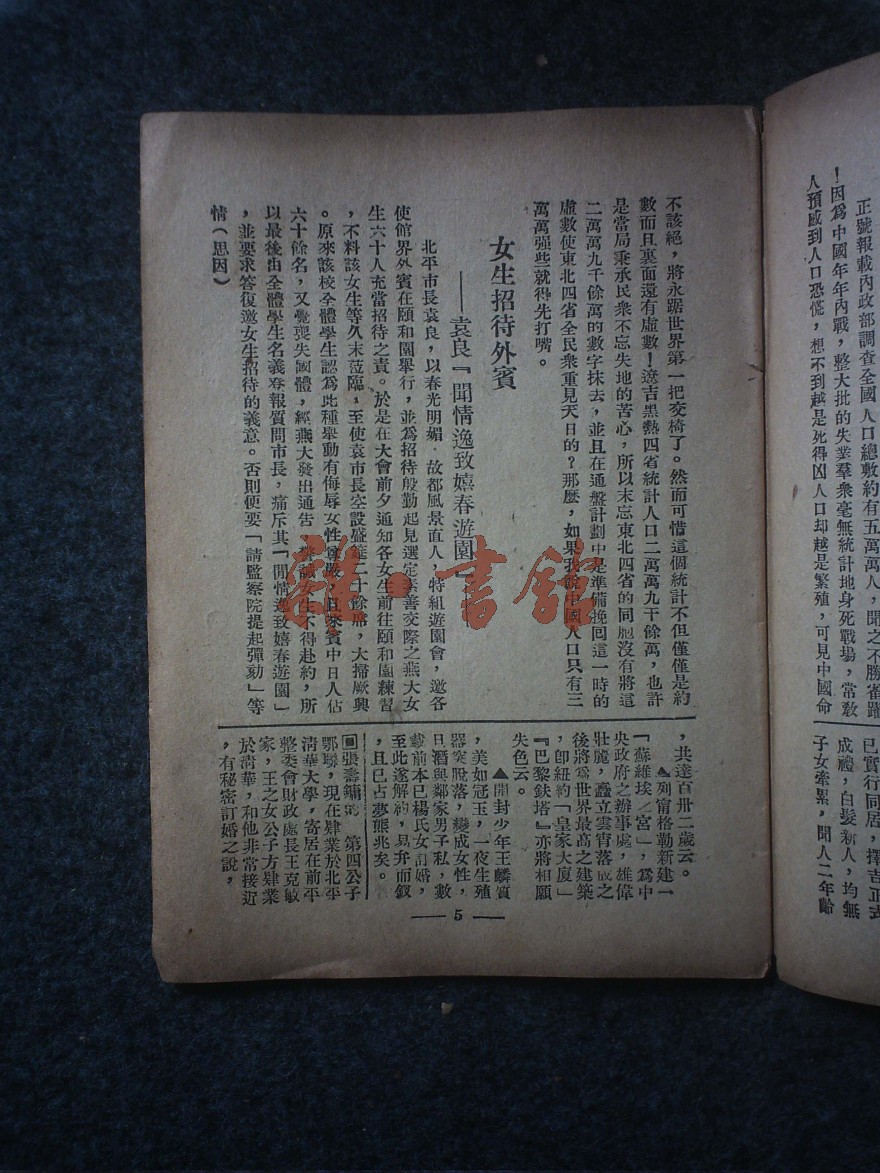 正號報載內政部調查全國人口總數約有五萬萬人，聞之不勝雀躍
！因爲中國年年內戰，整大批的失業羣衆毫無統計地身死戰場，常敎
人預感到人口恐慌，想不到越是死得凶人口却越是繁殖，可見中國命
不該絕，將永踞世界第一把交椅了。然而可惜這個統計不但僅僅是約
數而且裏面還有虛數！遼吉黑熱四省統計人口二萬萬九千餘萬，也許
是當局秉承民衆不忘失地的苦心，所以未忘東北四省的同胞沒有將這
二萬萬九千餘萬的數字抹去，並且在通盤計劃中是準備挽囘這一時的
虛數使東北四省全民衆重見天日的？那麼，如果我說中國人口只有三
萬萬强些就得先打嘴。
女生招待外賓
——袁良『閒情逸致嬉春遊園』——
北平市長袁良，以春光明媚．故都風景宜人，特組遊園會，邀各
使館界外賓在頤和園舉行，並爲招待殷勤起見選定素善交際之燕大女
生六十人充當招待之責。於是在大會前夕通知各女生前往頤和園練習
，不料該女生等久未蒞臨，至使袁市長空設盛筵二十餘席，大掃厥興
。原來該校全體學生認爲此種舉動有侮辱女性尊嚴，且來賓中日人佔
六十餘名，又覺喪失國體，經燕大發出通吿 女生不得赴約，所
以最後由全體學生名義登報質問市長，痛斥其「閒情逸致嬉春遊園」
，並要求答復邀女生招待的義意。否則便要「請監察院提起彈劾」等
情（思因）
已實行同居，擇吉正式
成禮，白髮新人，均無
子女牽累，聞人二年齡
，共達百卅二歲云。
▲列甯格勒新建一
「蘇維埃之宮」，爲中
央政府之辦事處，雄偉
壯麗，矗立雲霄落成之
後將爲世界最高之建築
，卽紐約「皇家大廈」
『巴黎鉄塔』亦將相顧
失色云。
▲開封少年王麟質
，美如冠玉，一夜生殖
器突脫落，變成女性，
旦酒與鄰家男子私，數
載前本已楊氏女訂婚，
至此遂解約，易弁而釵
，且已占夢熊兆矣。
▣張壽鏞 第四公子
鄂聯，現在肄業於北平
淸華大學，寄居在前平
整委會財政處長王克敏
家，王之女公子方肄業
於淸華，和他非常接近
，有秘密訂婚之說，
— 5 —
雜·書館